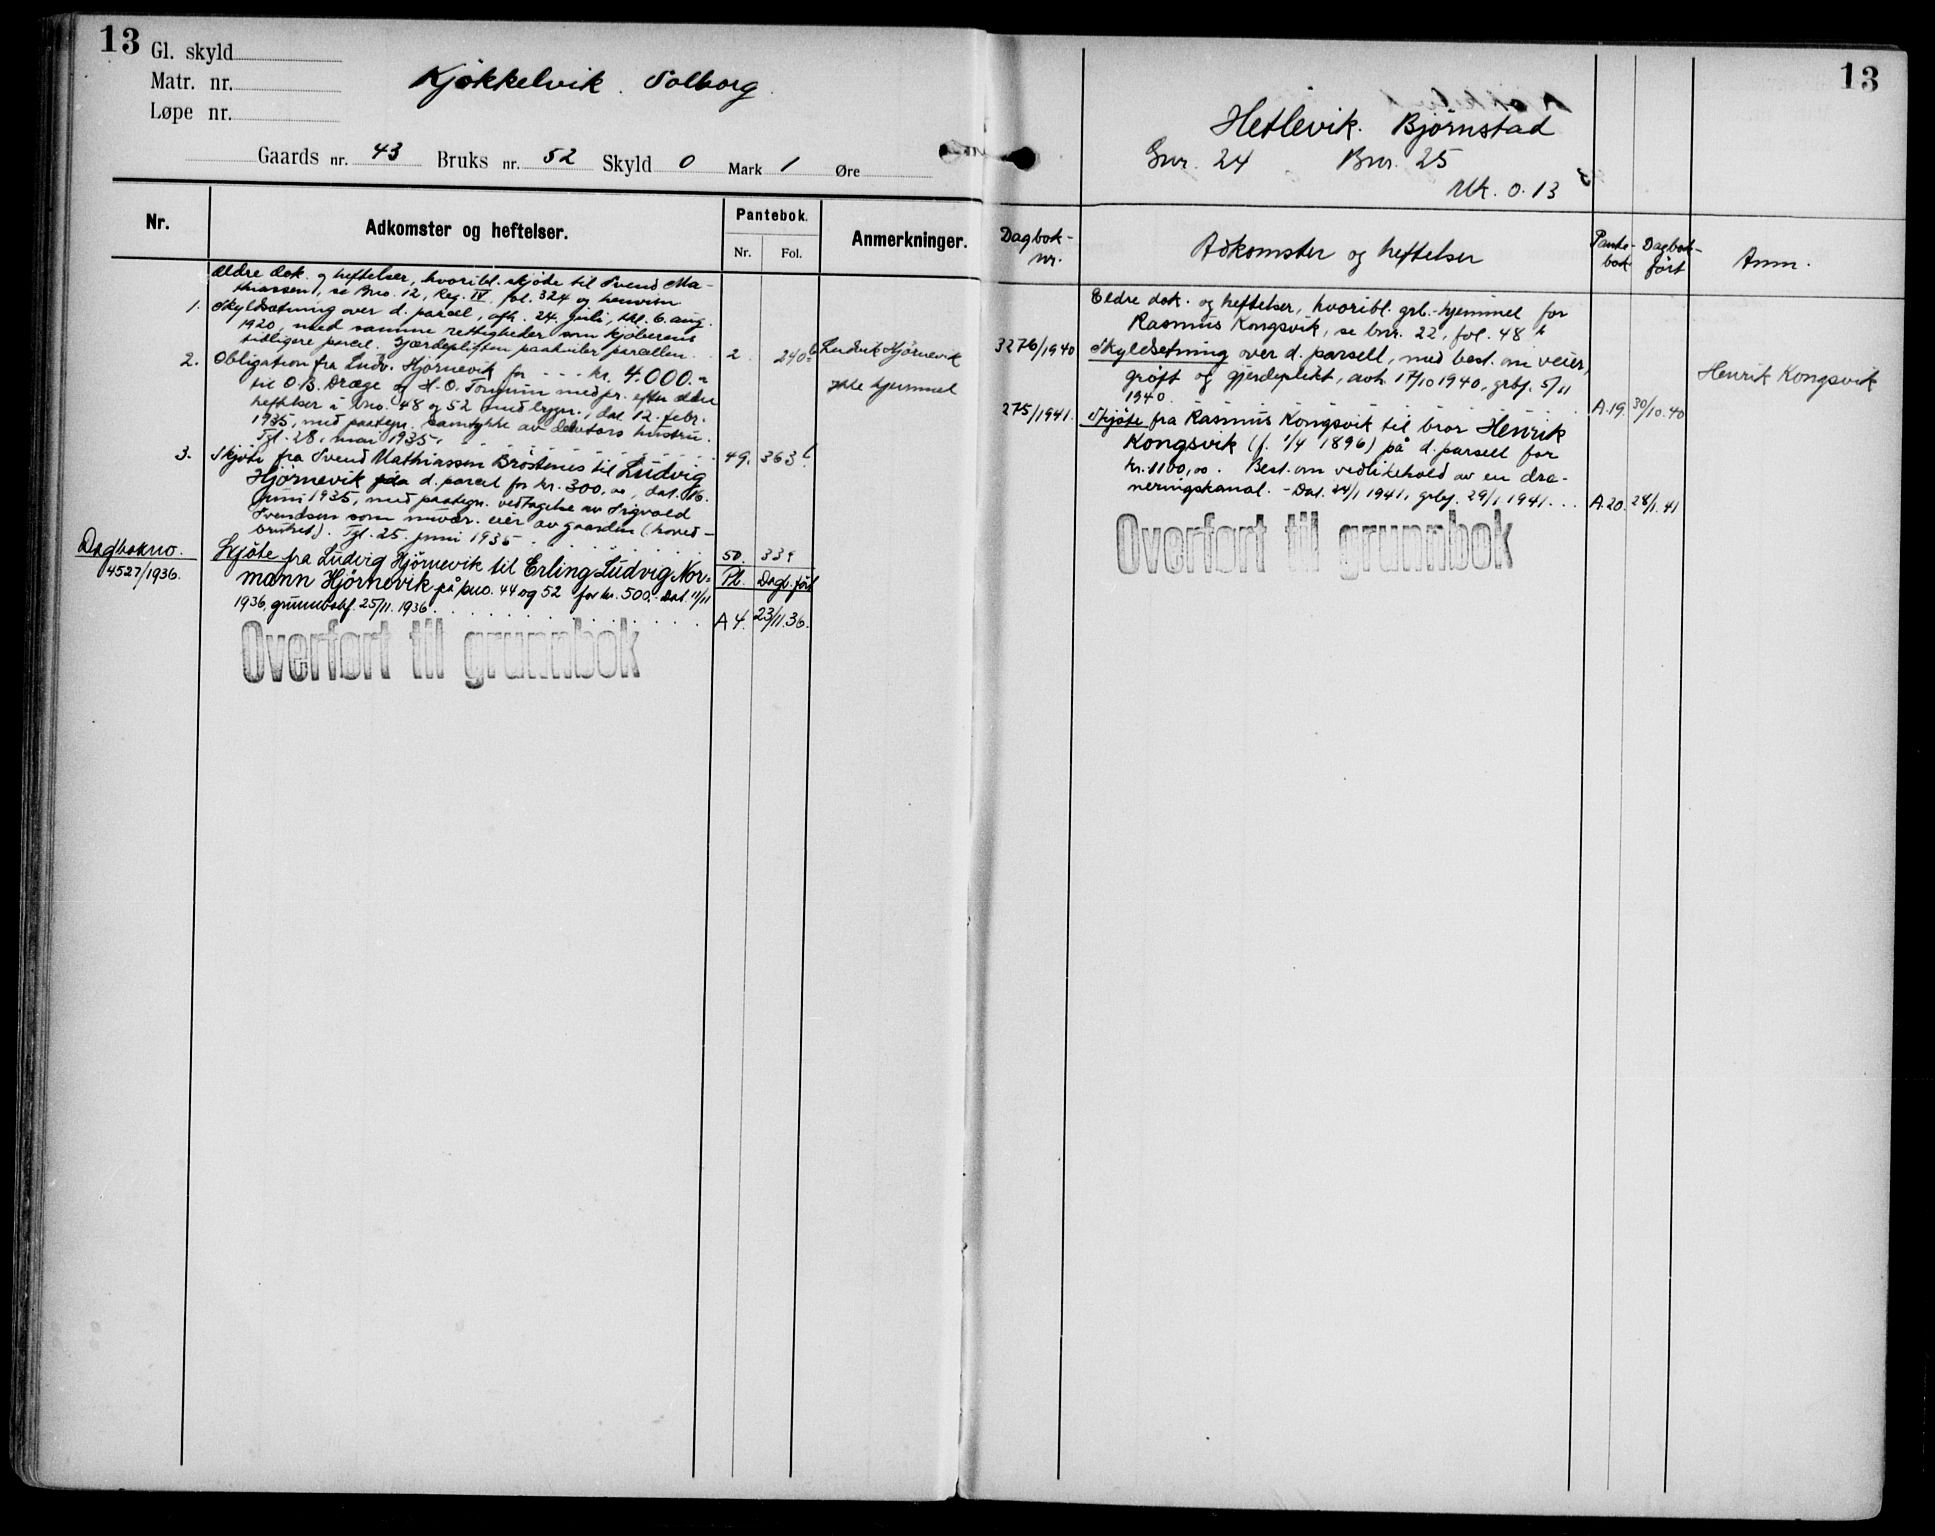 13
Gl. skyld
Matr. nr.
Løpe nr.
Kjøkkelvik. Solborg.
Gaards nr. 43 Bruks nr. 52 Skyld 0 Mark 1 Øre
Nr.
Adkomster og heftelser.
Pantebok.
Nr. Fol.
Anmerkninger.
Ældre dok. og heftelser, hvoribl. skjøte til Svend Ma-
thiassen, se Bno. 12, Reg. IV. fol. 324 og henvisn.
1. Skyldsætning over d. parcel, afh. 24. juli, tgl. 6. aug.
1920, med samme rettigheder som kjøberens
tidligere parcel. Gjærdepligten paahviler parcellen. 2. 240 b Ludvik Hjørnevik
2. Obligation fra Ludv. Hjørnevik for - - - kr. 4.000.-
ikke hjemmel
til O.B. Dræge og H.O. Tongum med pr. efter ældre
heftelser i bno. 48 og 52 med bygn., dat 12. febr.
1935, med paategn. samtykke av debitors hustru.
Tgl. 28. mai 1935. 49. 363 b
3. Skjøte fra Svend Mathiassen Brøstenes til Ludvig
Hjørnevik paa d. parcel for kr. 300,00, dat. 16.
juni 1935, med paategn. vedtagelse av Sigvald
Svendsen som nuvær. eier av gaarden (hoved-
bruket). Tgl. 25. juni 1935 50. 339
Dagbokno.
4527/1936.
Skjøte fra Ludvig Hjørnevik til Erling Ludvig Nor-
mann Hjørnevik på bno. 44 og 52 for kr. 500.- Dat. 11/11
Pb. Dagb. ført
1936, grunnbokf. 25/11. 1936. A 4. 23/11.36.
Overført til grunnbok
13
Hetlevik. Bjørnstad
Gnr. 24 Bnr. 25
Mk. 0.13
Dagbok-
nr.
Adkomster og heftelser
Pante-
bok
Dagbok-
ført
Anm.
Eldre dok. og heftelser, hvoribl. grb.-hjemmel for
Rasmus Kongsvik, se bnr. 22, fol. 48 b
3276/1940 Skyldsetning over d. parsell, med best. om veier,
grøft og gjerdeplikt, avh. 17/10 1940, grbf. 5/11
1940. A.19 30/10.40
Henrik Kongsvik
275/1941. Skjøte fra Rasmus Kongsvik til bror Henrik
Kongsvik (f. 1/4 1896) på d. parsell for
kr. 1100,00. Best. om vedlikehold av en dre-
neringskanal. - Dat. 24/1 1941, grbf. 29/1 1941. A.20. 28/1.41
Overført til grunnbok